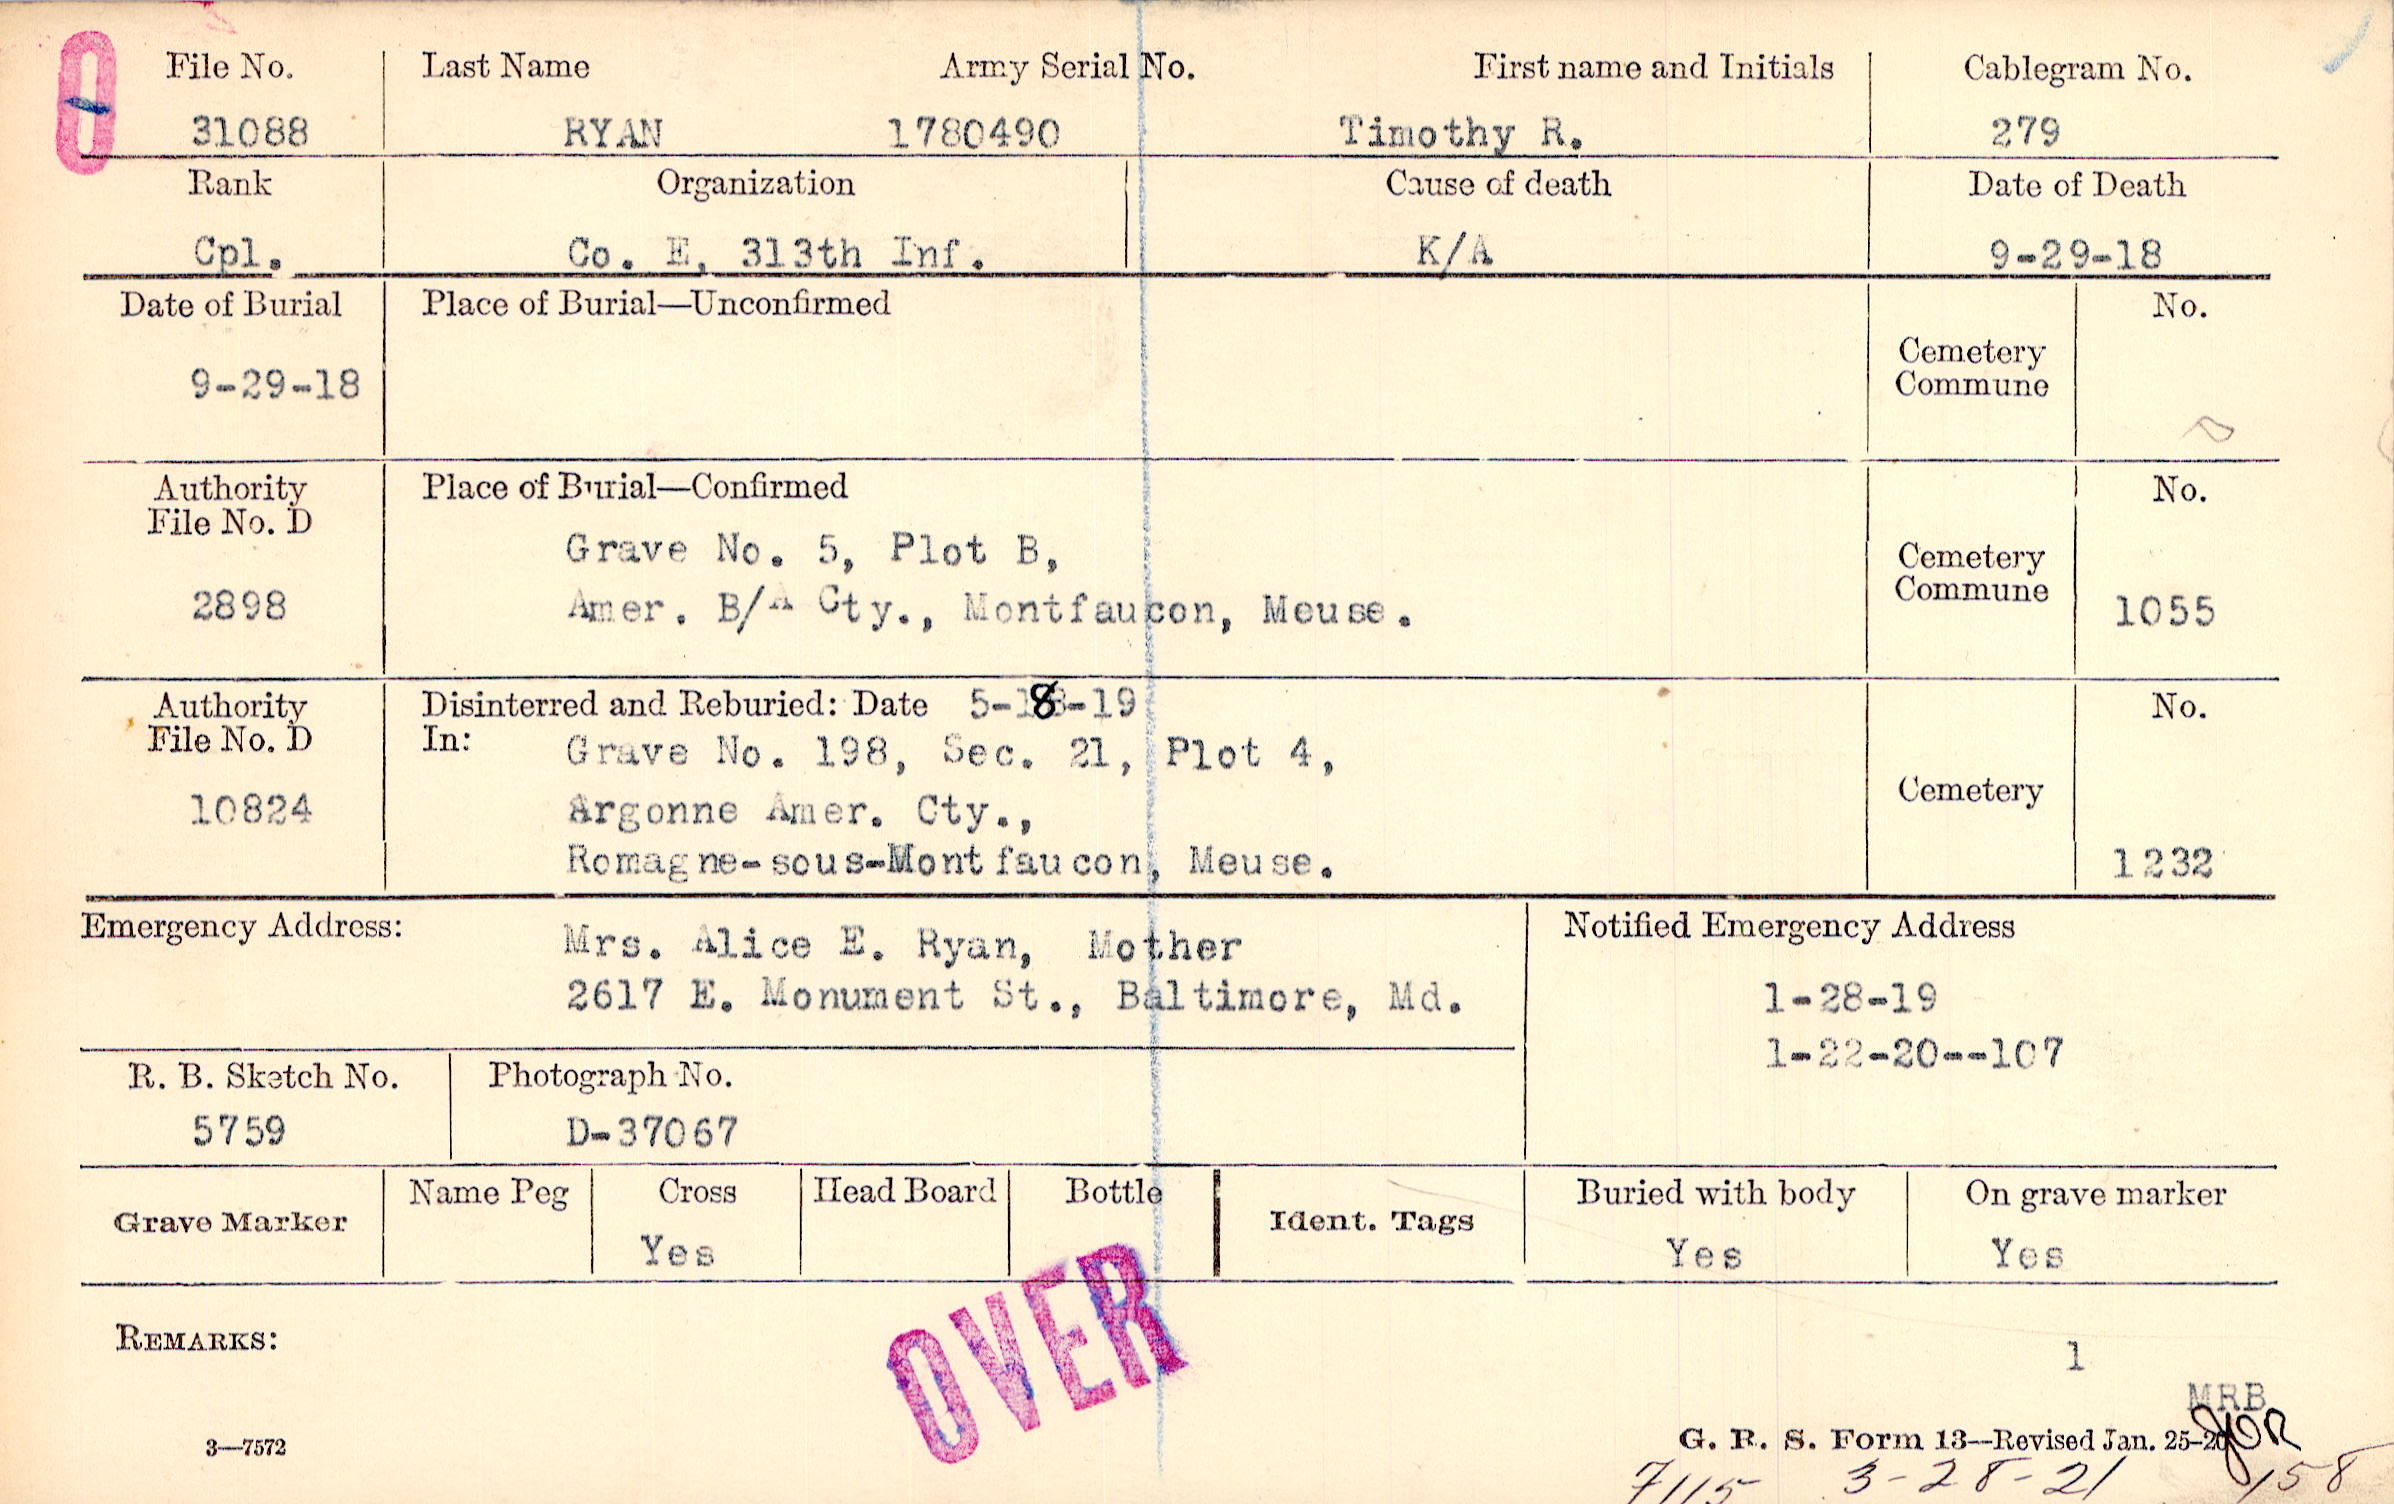 0
File No. Last Name Army Serial No. First name and Initials Cablegram No.
31088 RYAN 1780490 Timothy R. 279
Rank Organization Cause of death Date of Death
Cpl. Co. E, 313th Inf. K/A 9-29-18
Date of Burial Place of Burial—Unconfirmed No.
Cemetery
Commune
9-29-18
Authority Place of Burial—Confirmed No.
File No. D
Grave No. 5, Plot B,
Cemetery
Commune
2898 Amer. B/A Cty., Montfaucon, Meuse. 1055
Authority Disinterred and Reburied: Date 5-18-19 No.
File No. D In: Grave No. 198, Sec. 21, Plot 4,
Cemetery
10824 Argonne Amer. Cty.,
Romagne-sous-Montfaucon, Meuse. 1232
Emergency Address: Mrs. Alice E. Ryan, Mother
2617 E. Monument St., Baltimore, Md.
Notified Emergency Address
1-28-19
1-22-20--107
R. B. Sketch No. Photograph No.
5759 D-37067
Grave Marker Name Peg Cross Head Board Bottle Ident. Tags Buried with body On grave marker
Yes Yes Yes
OVER
REMARKS:
1
MRB
JOR
3—7572 G. R. S. Form 13—Revised Jan. 25-20
7115 3-28-21 158